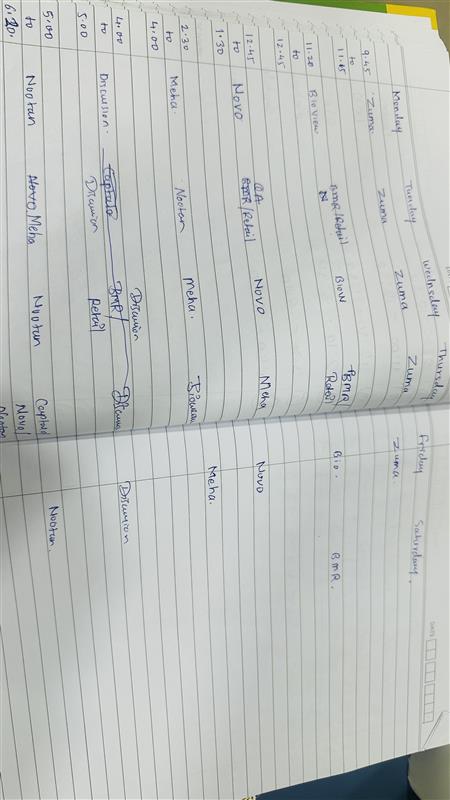 DATE
Monday Tuesday Wednesday Thursday Friday Saturday.
9.45 Zuma. Zuma Zuma Zuma Zuma.
to
11.15
11.20 Bioview BMR/Retail Biow BMR/ Bio. BMR.
to N Retail
12.45
12.45 Novo QA Novo Meha Novo
to BMR/Retail
1.30
2.30 Meha. Nootan Meha. Meha.
to
4.00
4.00 Discussion. Discussion Discussion
to Discussion BMR/
5.00 Retail
5.00 Nootan Novo, Meha Nootan Nootan.
to Novo/
6.20. Nootan